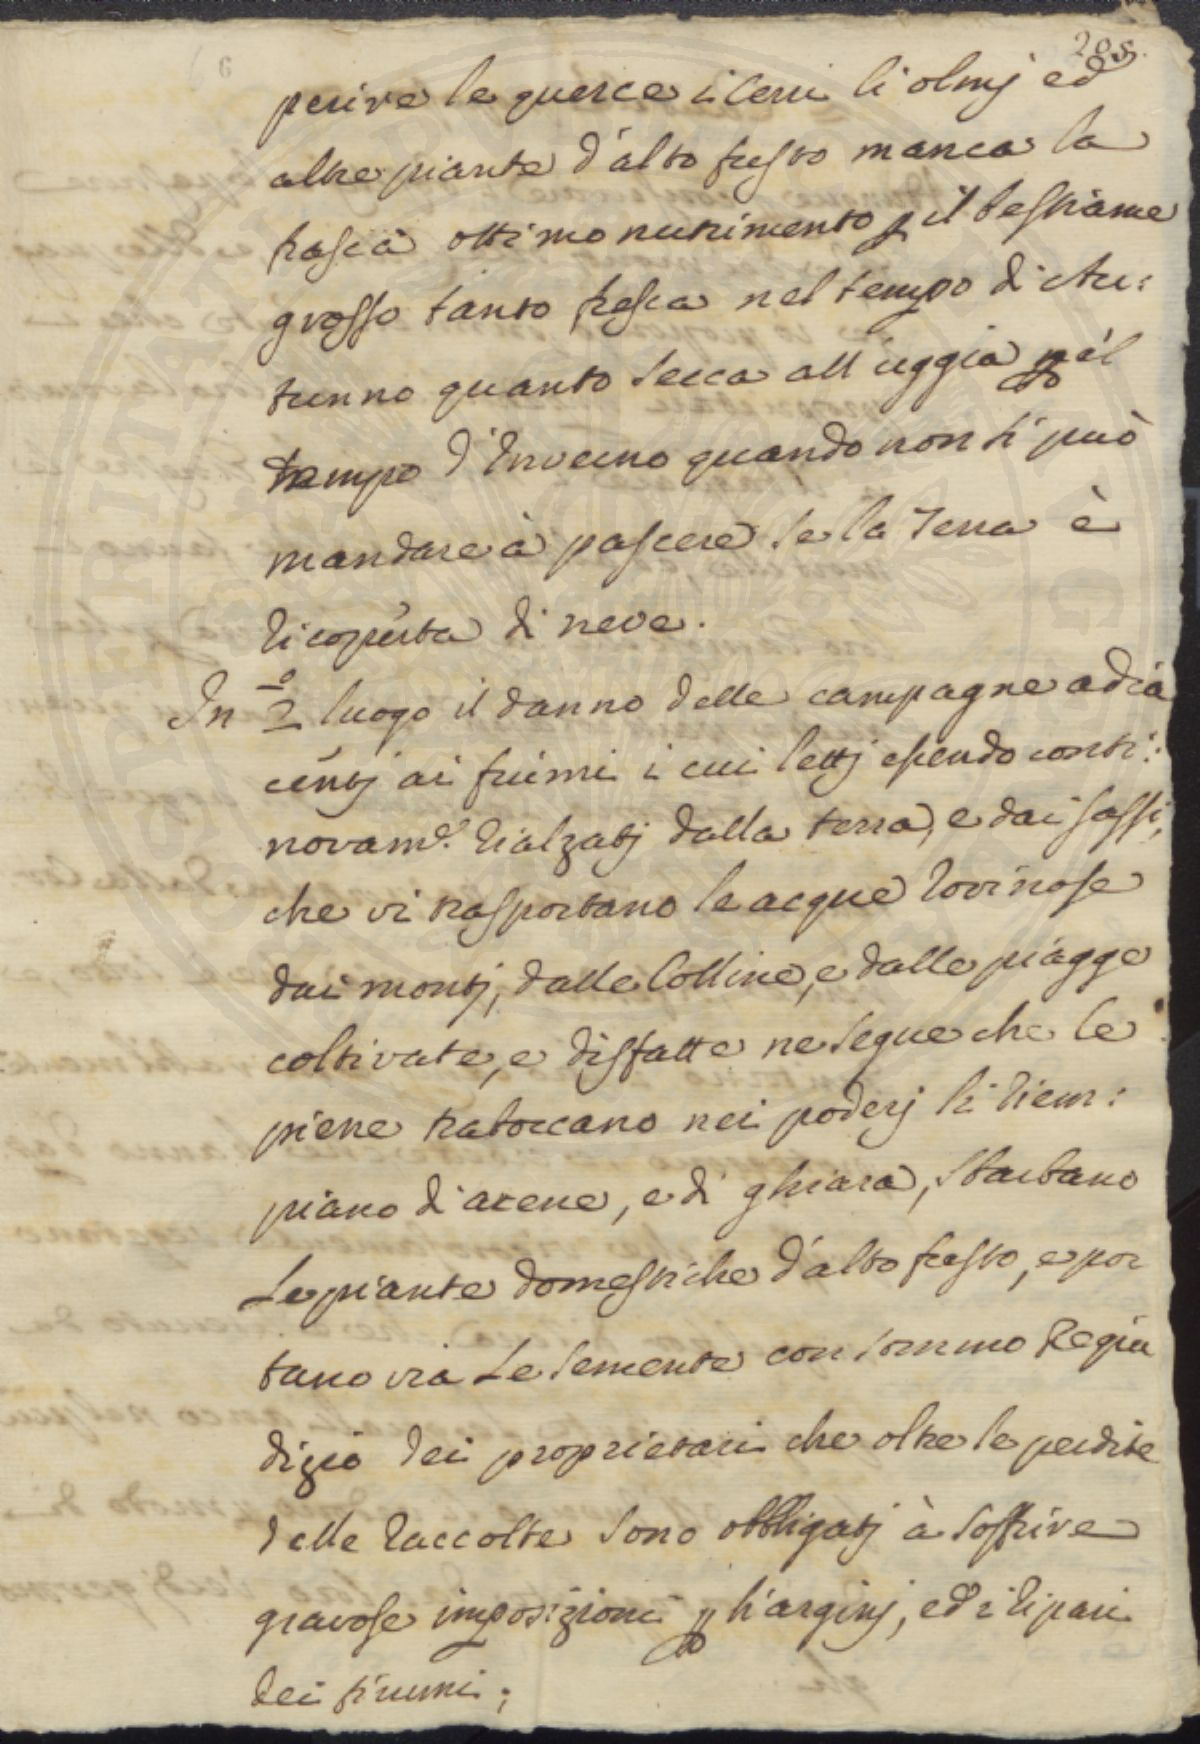 205.
perire le querce i cerri li olmj ed
altre piante d'alto fusto manca la
frasca ottimo nutrimento p il bestiame
grosso tanto fresca nel tempo di Au:
tunno quanto secca all uggia p el
tempo d'Inverno quando non si può
mandare à pascere se la Terra è
ricoperta di neve.
In 2.º luogo il danno delle campagne adia
centj ai fiumi i cui lettj essendo conti:
novam.e rialzatj dalla terra, e dai sassi,
che vi trasportano le acque rovinose
dai montj, dalle Colline, e dalle piagge
coltivate, e disfatte ne segue che le
piene traboccano nei poderj li riem:
piano di arene, e di ghiara, sbarbano
Le piante domestiche d'alto fusto, e por
tano via Le semente con sommo Pregiu
dizio dei proprietari che oltre le perdite
delle raccolte sono obbligatj à soffrire
gravose imposizioni p li arginj, ed i ripari
dei fiumi;